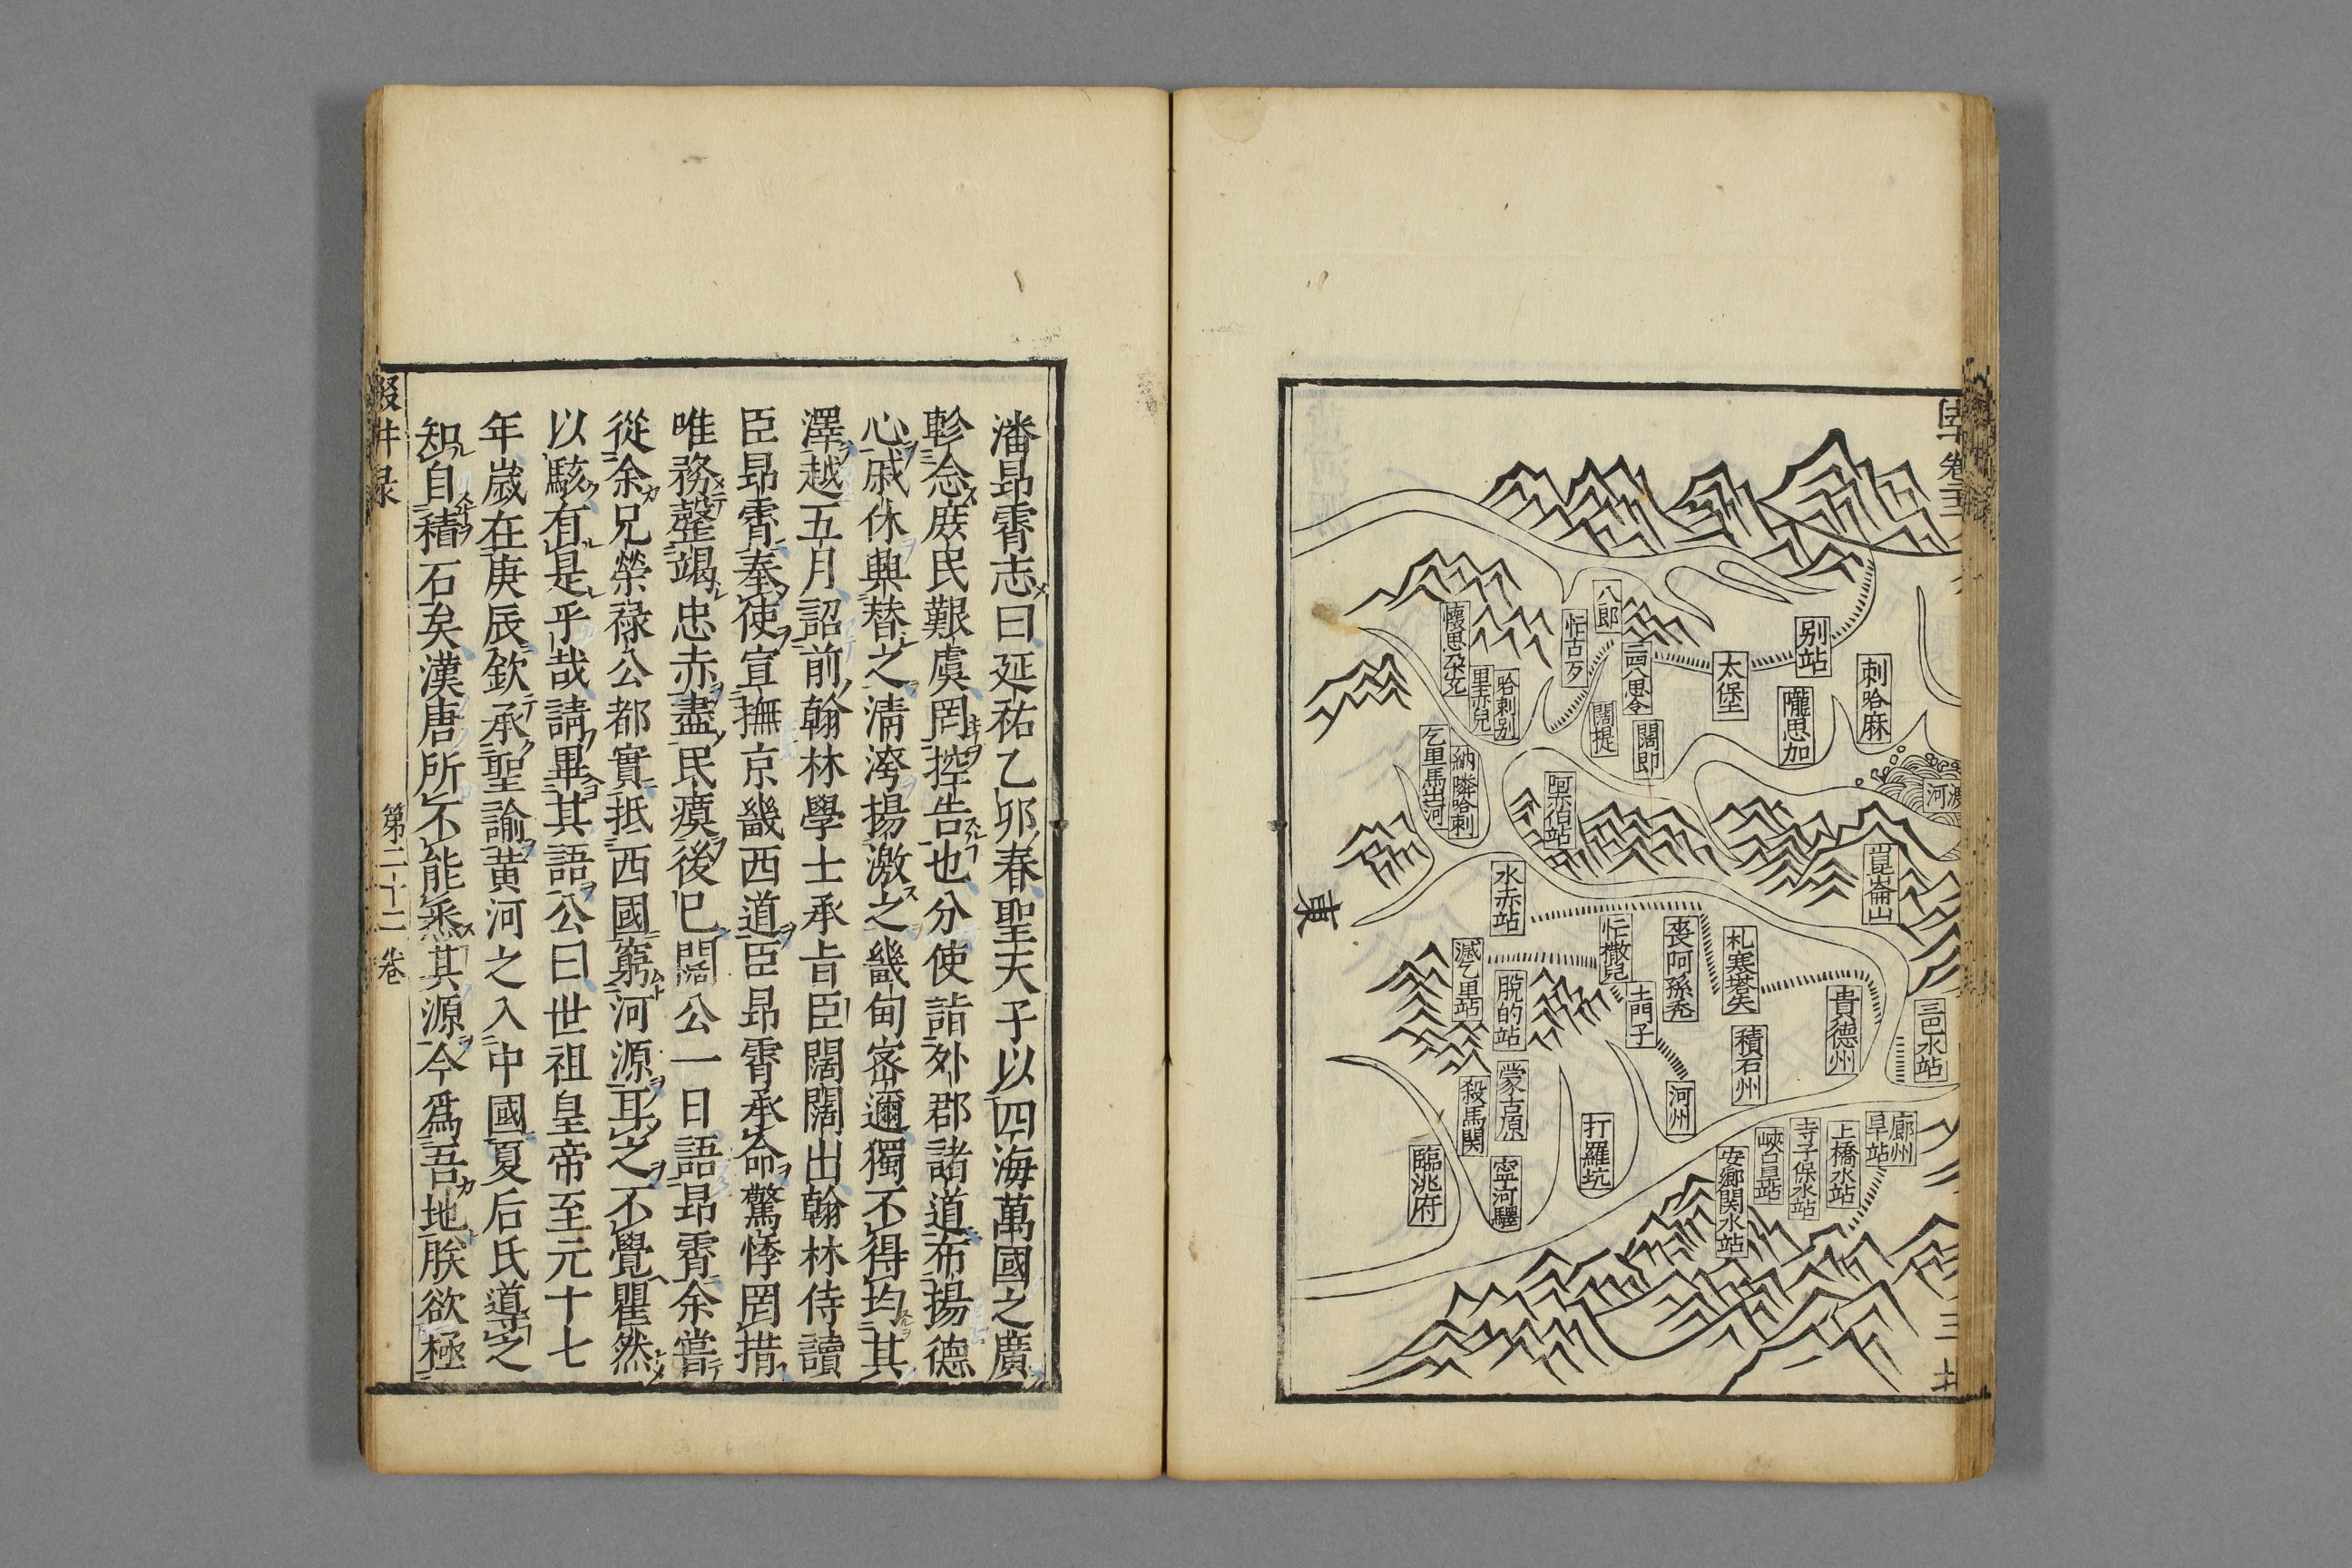 卷二十
八郎
别站
懷思朶
怯古
哈剌别
里赤兒
亦西八思今
太堡
刺哈麻
隴思加
闊提
闊即
乞里馬出河
納隣哈剌
河源
阿以伯站
崑崙山
水赤站
東
滅乞里站
脱的站
怔撒兒
土門子
喪阿孫禿
札塞塔失
貴德州
三巴水站
積石州
河州
殺馬関
蒙古原
打羅坑
臨洮府
寧河驛
安鄉関水站
峽口旦站
寺子保水站
上橋水站
廊州
旱站
三
潘昂霄志曰延祐乙卯春聖天子以四海萬國之廣
軫念庶民艱虞罔控告也分使詣外郡諸道布揚德
心戚休興替之清濁揚激之畿甸宻邇獨不得均其
澤越五月詔前翰林學士承旨臣闊闊出翰林侍讀
臣昻霄奉使宣撫京畿西道臣昻霄承命驚悸罔措
唯務罄竭忠赤盡民瘼後巳闊公一日語昻霄余嘗
從余兄榮禄公都實抵西國窮河源耳之不覺瞿然
以駭有是乎哉請畢其語公曰世祖皇帝至元十七
年歳在庚辰欽承聖諭黄河之入中國夏后氏導之
知自積石矣漢唐所不能悉其源今爲吾地朕欲極
輟耕录
第二十二卷